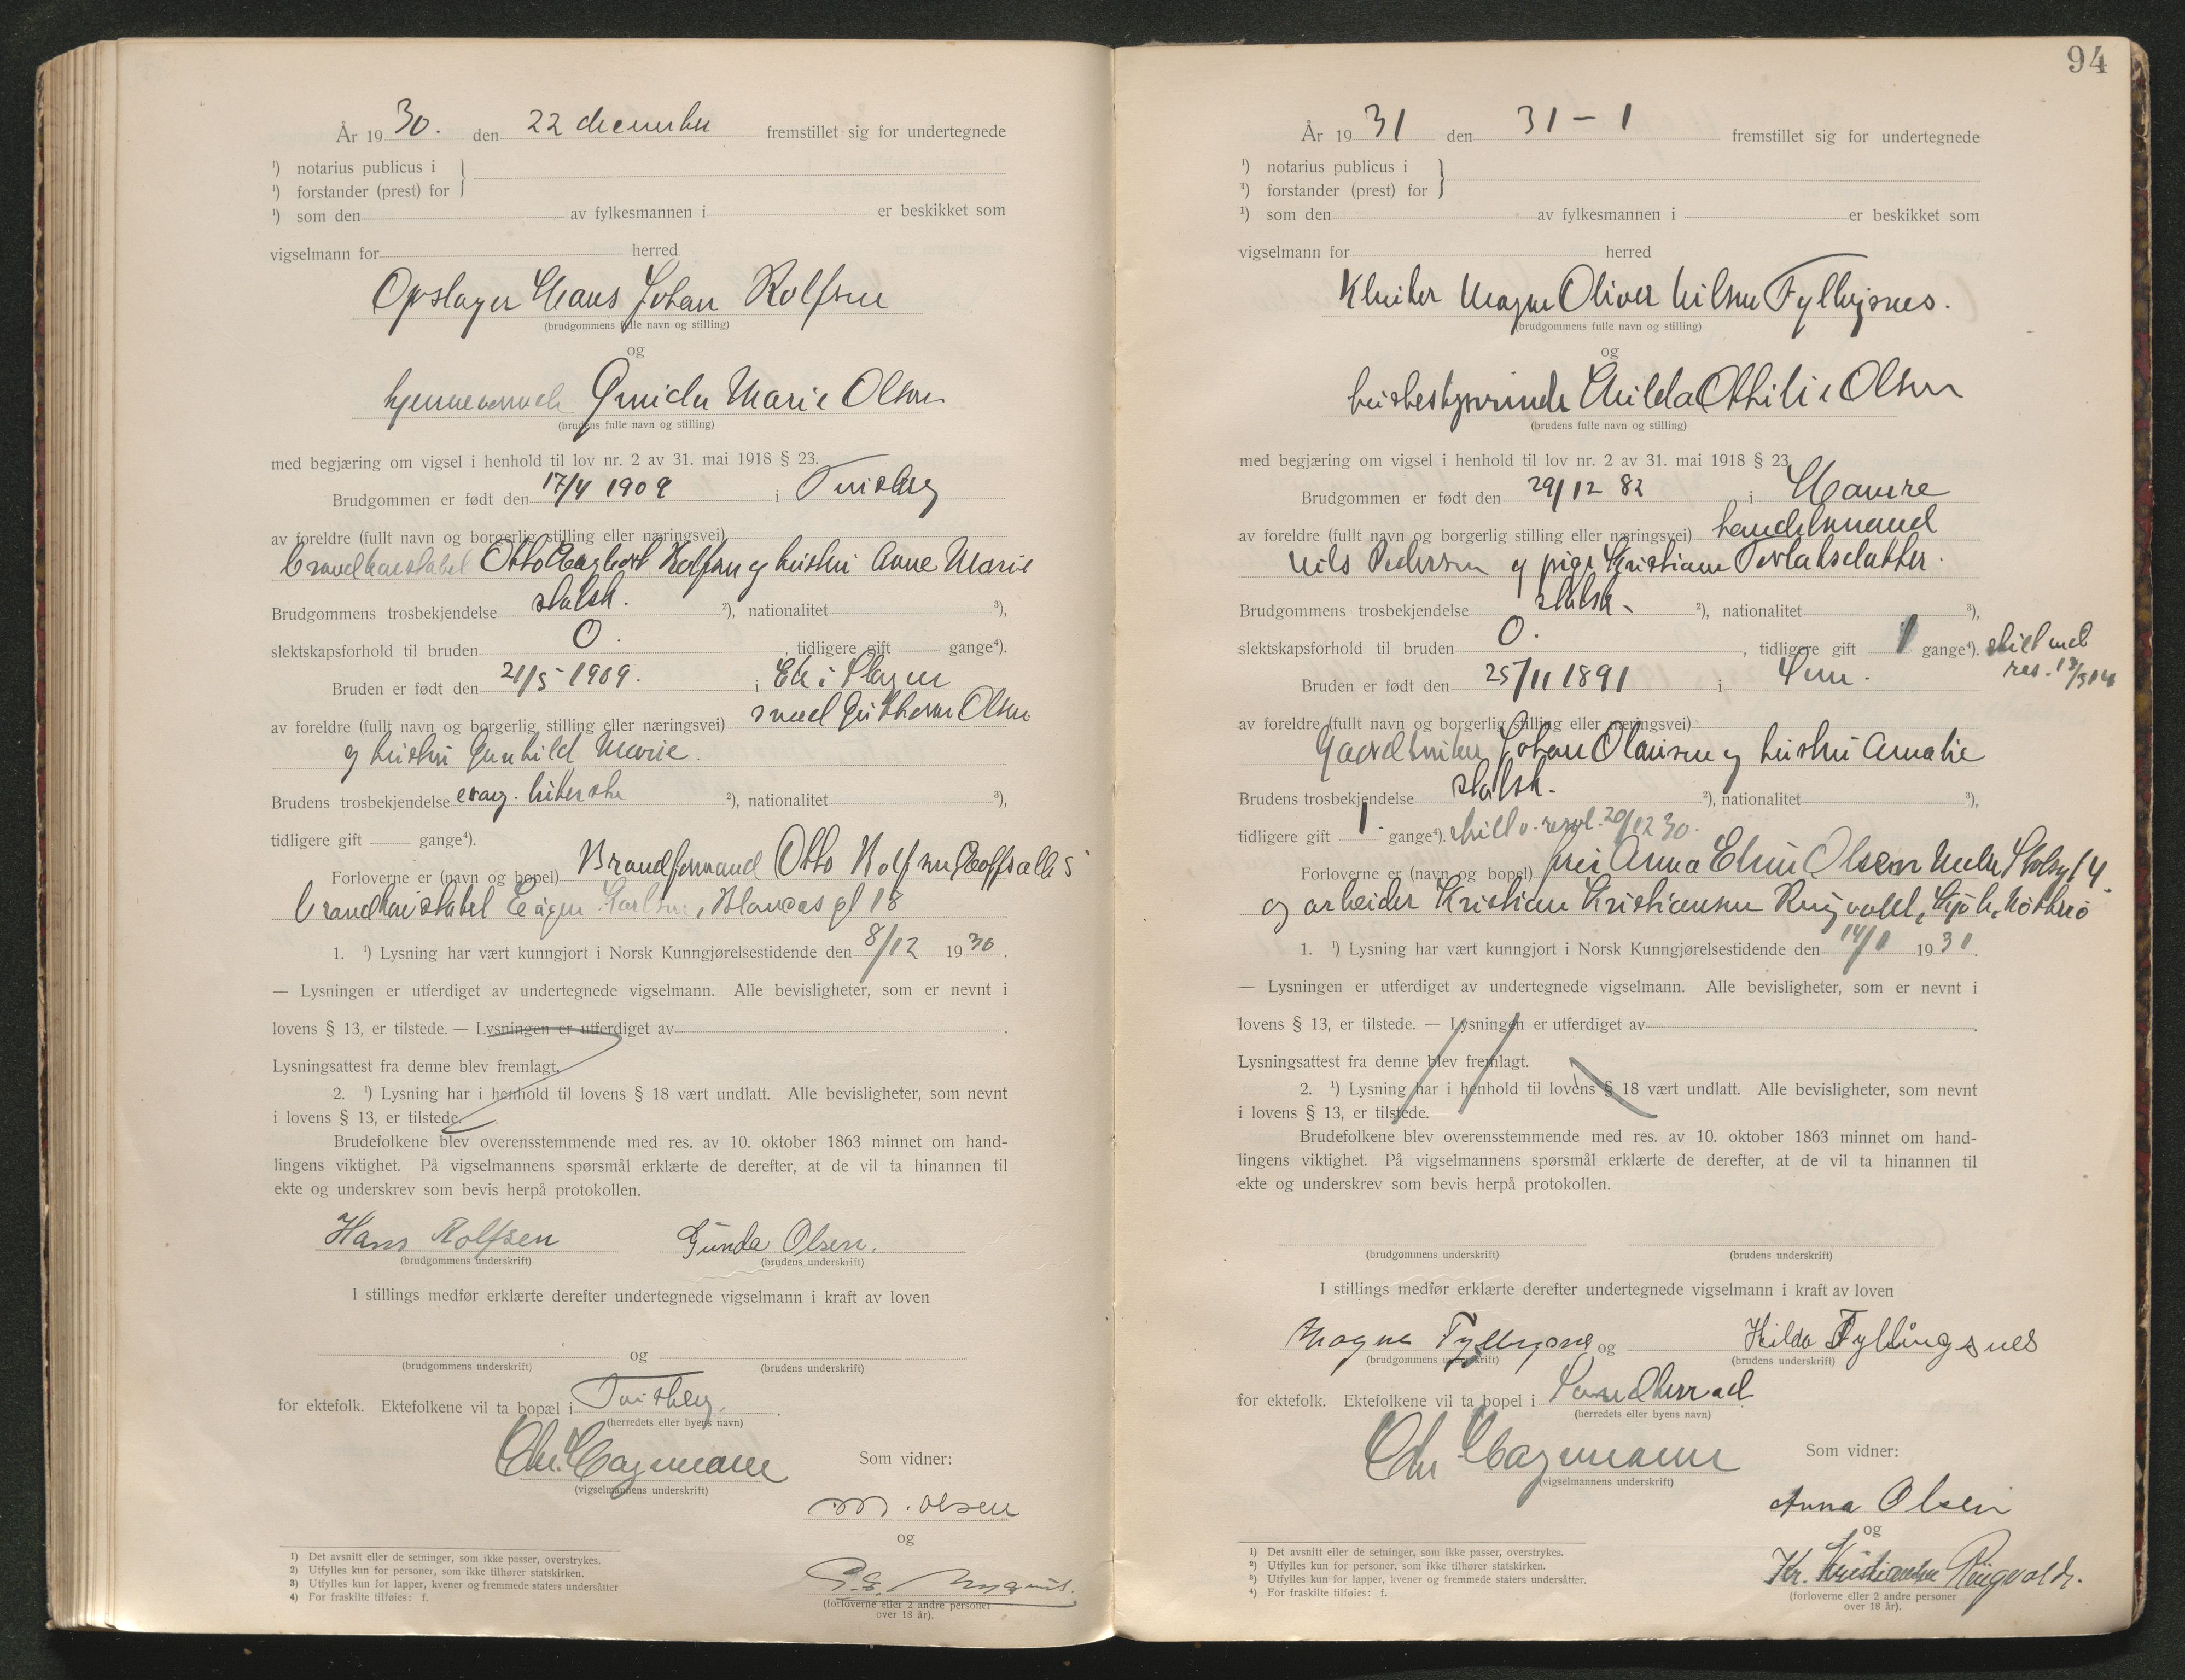 År 19 30. den 22 december fremstillet sig for undertegnede
¹) notarius publicus i
¹) forstander (prest) for
¹) som den av fylkesmannen i er beskikket som
vigselmann for herred
Opslager Hans Johan Rolfsen
(brudgommens fulle navn og stilling)
og
hjemmeværende Gunda Marie Olsen
(brudens fulle navn og stilling)
med begjæring om vigsel i henhold til lov nr. 2 av 31. mai 1918 § 23.
Brudgommen er født den 17/4 1909 i Tønsberg
av foreldre (fullt navn og borgerlig stilling eller næringsvei)
brandkonstabel Otto Rolfsen og hustru Anne Marie
Brudgommens trosbekjendelse statsk. ²), nationalitet ³),
slektskapsforhold til bruden 0. , tidligere gift gange⁴).
Bruden er født den 21/5 1909. i Ek i Slagen
av foreldre (fullt navn og borgerlig stilling eller næringsvei) smed Guthorm Olsen
og hustru Gunhild Marie.
Brudens trosbekjendelse evang. lutherske ²), nationalitet ³),
tidligere gift gange⁴).
Forloverne er (navn og bopel) Brandformand Otto Rolfsen
brandkonstabel Eugen Karlsen, gt 18
1. ¹) Lysning har vært kunngjort i Norsk Kunngjørelsestidende den 8/12 19 30.
— Lysningen er utferdiget av undertegnede vigselmann. Alle bevisligheter, som er nevnt i
lovens § 13, er tilstede. — Lysningen er utferdiget av .
Lysningsattest fra denne blev fremlagt.
2. ¹) Lysning har i henhold til lovens § 18 vært undlatt. Alle bevisligheter, som nevnt
i lovens § 13, er tilstede.
Brudefolkene blev overensstemmende med res. av 10. oktober 1863 minnet om hand-
lingens viktighet. På vigselmannens spørsmål erklærte de derefter, at de vil ta hinannen til
ekte og underskrev som bevis herpå protokollen.
Hans Rolfsen Gunda Olsen.
(brudgommens underskrift) (brudens underskrift)
I stillings medfør erklærte derefter undertegnede vigselmann i kraft av loven
og
(brudgommens underskrift) (brudens underskrift)
for ektefolk. Ektefolkene vil ta bopæl i Tønsberg.
(herredets eller byens navn)
Chr. Hagemann
(vigselmannens underskrift)
Som vidner:
M. Olsen
og
(forloverne eller 2 andre personer
over 18 år).
1) Det avsnitt eller de setninger, som ikke passer, overstrykes.
2) Utfylles kun for personer, som ikke tilhører statskirken.
3) Utfylles kun for lapper, kvener og fremmede staters undersåtter
4) For fraskilte tilføies: f.
94
År 19 31 den 31 – 1 fremstillet sig for undertegnede
¹) notarius publicus i
¹) forstander (prest) for
¹) som den av fylkesmannen i er beskikket som
vigselmann for herred
Magne Oliver Nilsen Fyllingsnes.
(brudgommens fulle navn og stilling)
og
husbestyrerinde Hilda Othilie Olsen
(brudens fulle navn og stilling)
med begjæring om vigsel i henhold til lov nr. 2 av 31. mai 1918 § 23
Brudgommen er født den 29/12 82 i Hamre
av foreldre (fullt navn og borgerlig stilling eller næringsvei) handelsmand
Nils Pedersen og pige Kristiane Torlaksdatter.
Brudgommens trosbekjendelse statsk. ²), nationalitet ³),
slektskapsforhold til bruden 0. , tidligere gift 1 gange⁴). skilt ved
res.
Bruden er født den 25/11 1891 i Sem.
av foreldre (fullt navn og borgerlig stilling eller næringsvei)
Gaardbruker Johan Olausen og hustru Amalie
Brudens trosbekjendelse statsk. ²), nationalitet ³),
tidligere gift 1. gange⁴). skilt v. resol. 20/12 30.
Forloverne er (navn og bopel) frøi Anna Elise Olsen 14
og arbeider Kristian Kristiansen Ringvold, Nøtterø
1. ¹) Lysning har vært kunngjort i Norsk Kunngjørelsestidende den 14/1 19 31.
— Lysningen er utferdiget av undertegnede vigselmann. Alle bevisligheter, som er nevnt i
lovens § 13, er tilstede. — Lysningen er utferdiget av .
Lysningsattest fra denne blev fremlagt.
2. ¹) Lysning har i henhold til lovens § 18 vært undlatt. Alle bevisligheter, som nevnt
i lovens § 13, er tilstede.
Brudefolkene blev overensstemmende med res. av 10. oktober 1863 minnet om hand-
lingens viktighet. På vigselmannens spørsmål erklærte de derefter, at de vil ta hinannen til
ekte og underskrev som bevis herpå protokollen.
(brudgommens underskrift) (brudens underskrift)
I stillings medfør erklærte derefter undertegnede vigselmann i kraft av loven
Magne Fyllingsnes og Hilda Fyllingsnes
(brudgommens underskrift) (brudens underskrift)
for ektefolk. Ektefolkene vil ta bopel i Sandherred
(herredets eller byens navn)
Chr Hagemann
(vigselmannens underskrift)
Som vidner:
Anna Olsen
og
Kr. Kristiansen Ringvold.
(forloverne eller 2 andre personer
over 18 år).
¹) Det avsnitt eller de setninger, som ikke passer, overstrykes.
²) Utfylles kun for personer, som ikke tilhører statskirken.
³) Utfylles kun for lapper, kvener og fremmede staters undersåtter.
⁴) For fraskilte tilføies: f.